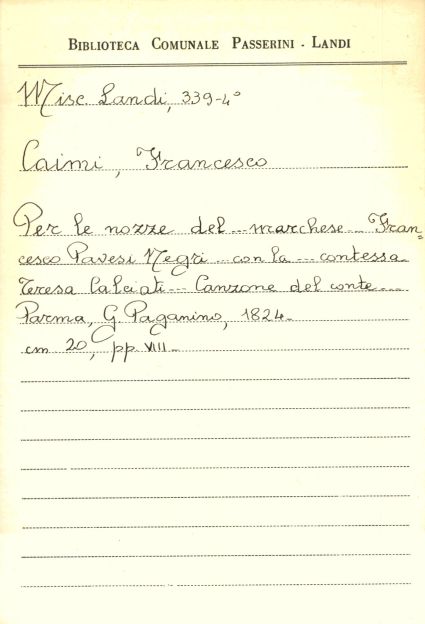 BIBLIOTECA COMUNALE PASSERINI - LANDI
Misc. Landi, 339-4°
Caimi, Francesco
Per le nozze del ... marchese ... Fran=
cesco Pavesi Negri ... con la ... contessa
Teresa Calciati ... Canzone del conte ...
Parma, G. Paganino, 1824.
cm 20, pp VIII.